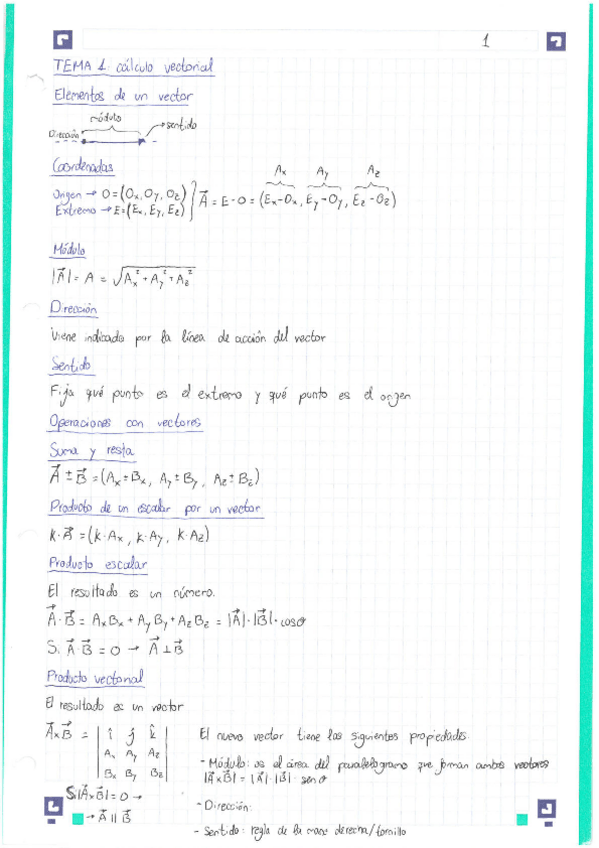 1
TEMA 1: cálculo vectorial
Elementos de un vector
módulo
Dirección → sentido
Coordenadas
Ax Ay Az
Origen → O=(Ox, Oy, Oz)
Extremo → E=(Ex, Ey, Ez) } A⃗ = E-O = (Ex-Ox, Ey-Oy, Ez-Oz)
Módulo
|A⃗| = A = √(Ax² + Ay² + Az²)
Dirección
Viene indicada por la línea de acción del vector
Sentido
Fija qué punto es el extremo y qué punto es el origen
Operaciones con vectores
Suma y resta
A⃗ ± B⃗ = (Ax ± Bx, Ay ± By, Az ± Bz)
Producto de un escalar por un vector
k·A⃗ = (k·Ax, k·Ay, k·Az)
Producto escalar
El resultado es un número.
A⃗·B⃗ = AxBx + AyBy + AzBz = |A⃗|·|B⃗|·cosθ
Si A⃗·B⃗ = 0 → A⃗ ⊥ B⃗
Producto vectorial
El resultado es un vector
A⃗xB⃗ = | î ĵ k̂ |
| Ax Ay Az |
| Bx By Bz |
Si |A⃗xB⃗| = 0 →
→ A⃗ || B⃗
El nuevo vector tiene las siguientes propiedades:
- Módulo: es el área del paralelogramo que forman ambos vectores
|A⃗xB⃗| = |A⃗|·|B⃗|·senθ
- Dirección:
- Sentido: regla de la mano derecha/tornillo